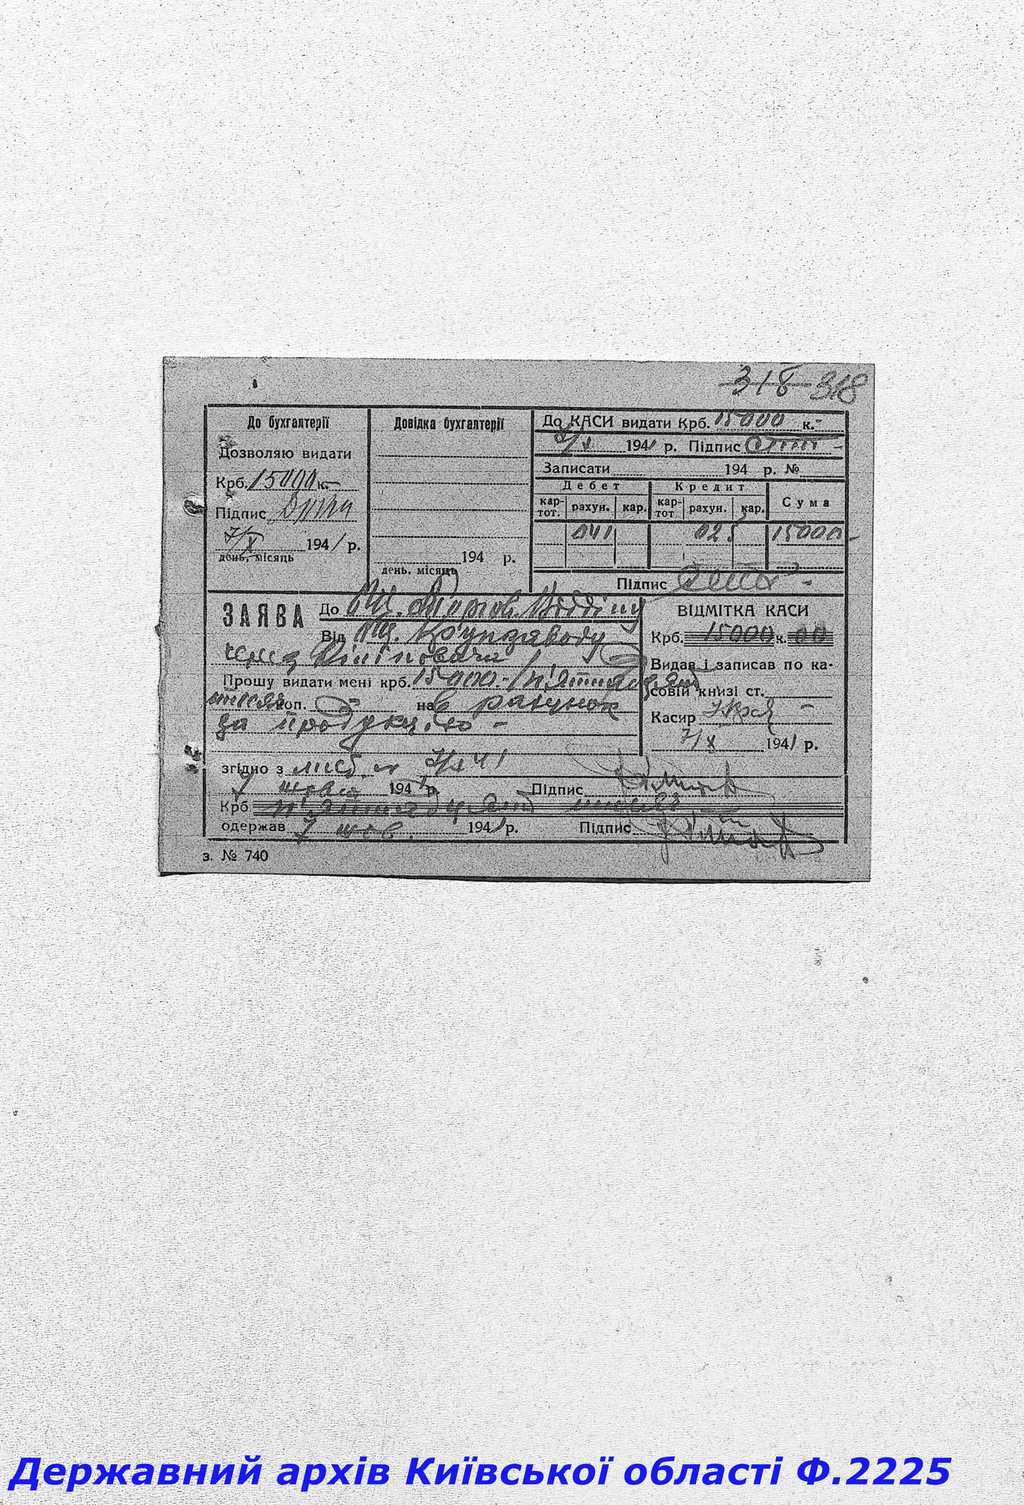 318 318
До бухгалтерії
Дозволяю видати
Крб. 15000 к.-
Підпис
7/X 1941 р.
день, місяць
Довідка бухгалтерії
194 р.
день. місяць
До КАСИ видати Крб. 15000 к.-
7/X 1941 р. Підпис
Записати 194 р. №
Дебет Кредит Сума
кар-тот. рахун. кар. кар-тот. рахун. кар.
041 025 15000-
Підпис
ЗАЯВА До Торгов. Відділу
Від
через
Прошу видати мені крб. 15000.- /п'ятнадцять
тисяч коп. - на в рахунок
за продукцію -
згідно з 7/X 41
7 жовт 1941 р. Підпис
Крб. п'ятнадцять тисяч
одержав 7 жов. 1941 р. Підпис
ВІДМІТКА КАСИ
Крб. 15000 к. 00
Видав і записав по ка-
совій книзі ст.
Касир
7/X 1941 р.
з. № 740
Державний архів Київської області Ф.2225